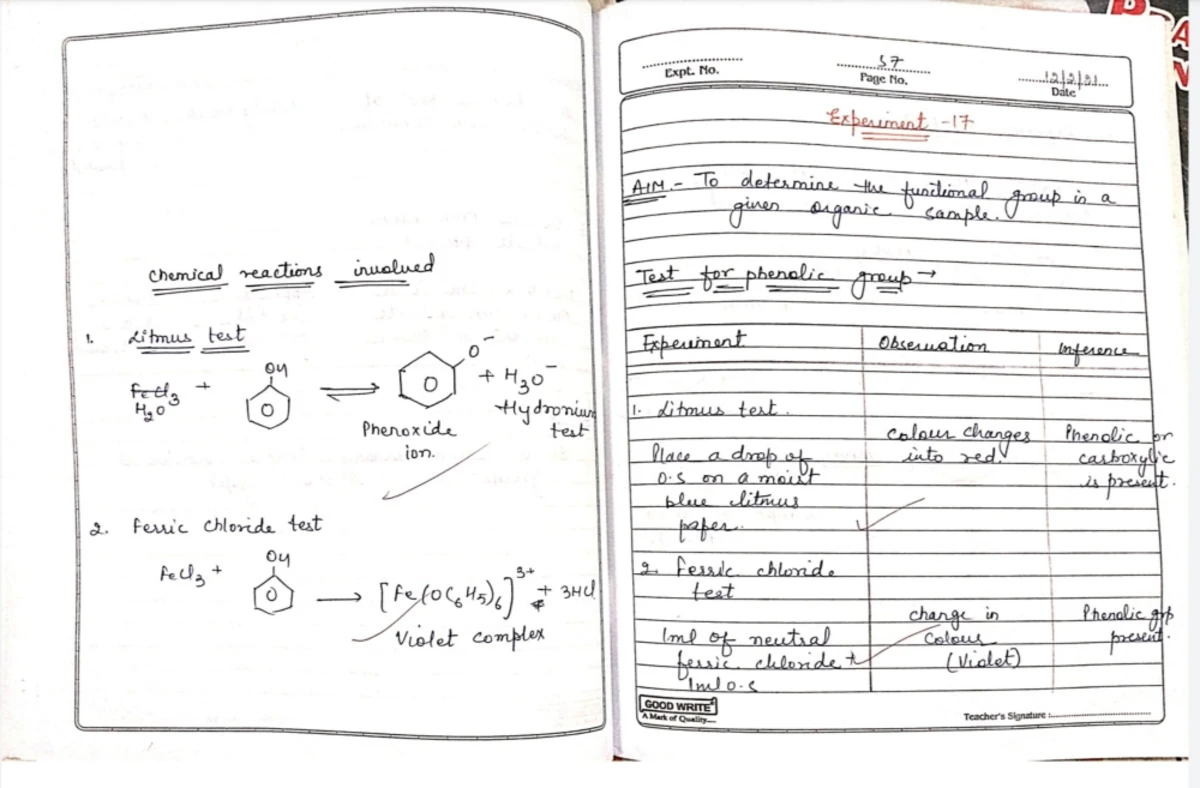 Chemical reactions involved
1. Litmus test
H2O + OH ⇌ O⁻ + H3O⁻
Phenoxide ion.
Hydronium test
2. Ferric Chloride test
FeCl3 + OH → [Fe(OC6H5)6]3+ + 3HCl
Violet complex
Expt. No.
57
Page No.
12/2/21
Date
Experiment :-17
AIM.- To determine the functional group in a
given organic sample.
Test for phenolic group →
Experiment Observation inference
1. Litmus test.
Place a drop of
O.S on a moist
blue litmus
paper.
colour changes
into red.
Phenolic or
carboxylic
is present.
2. Ferric chloride
test
1ml of neutral
ferric chloride +
1ml O.S
change in
colour
(Violet)
Phenolic grp
present.
GOOD WRITE
A Mark of Quality....
Teacher's Signature :